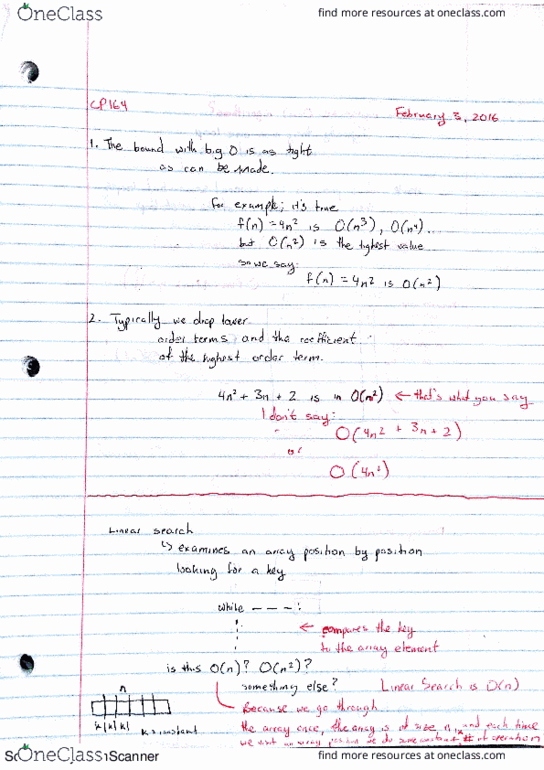 OneClass
find more resources at oneclass.com
CP164
February 3, 2016
1. The bound with big O is as tight
as can be made.
For example; it's true
f(n) = 4n² is O(n³), O(n⁴)
but O(n²) is the tightest value
so we say:
f(n) = 4n² is O(n²)
2. Typically we drop lower
order terms and the coefficient
of the highest order term.
4n² + 3n + 2 is in O(n²) ← that's what you say
I don't say:
O(4n² + 3n + 2)
or
O(4n²)
Linear search
↳ examines an array position by position
looking for a key
while - - - :
← compares the key
to the array element
is this O(n)? O(n²)?
something else?
Linear Search is O(n)
Because we go through
the array once, the array is of size n, and each time
we visit an array position we do some constant # of operation
n
k|k|k|
k = constant
OneClass
Scanner
find more resources at oneclass.com